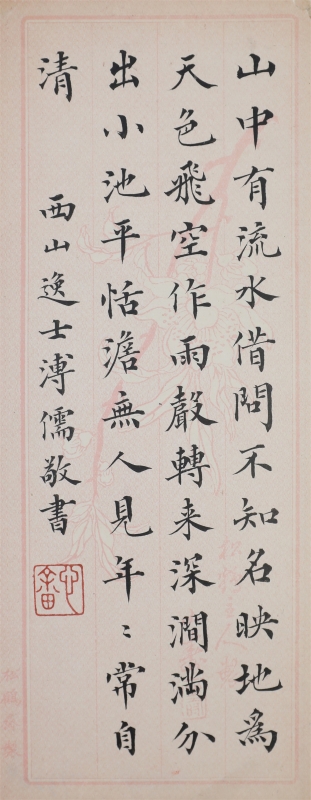 山中有流水借問不知名映地為
天色飛空作雨聲轉来深澗滿分
出小池平恬澹無人見年〻常自
清
西山逸士溥儒敬書
心畬